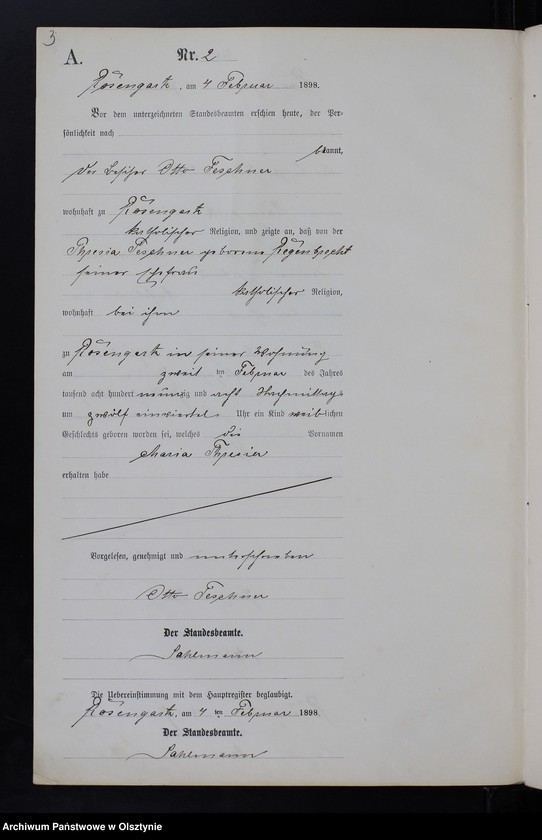 3
A.
Nr. 2
Rosengarth, am 4 Februar 1898.
Vor dem unterzeichneten Standesbeamten erschien heute, der Per-
sönlichkeit nach
bekannt,
der Besitzer Otto Teschner
wohnhaft zu Rosengarth
katholischer Religion, und zeigte an, daß von der
Theresia Teschner geborene Regenbrecht
seiner Ehefrau
katholischer Religion,
wohnhaft bei ihm
zu Rosengarth in seiner Wohnung
am zweit ten Februar des Jahres
tausend acht hundert neunzig und acht Nachmittags
um zwölf einviertel Uhr ein Kind weiblichen
Geschlechts geboren worden sei, welches die Vornamen
Maria Theresia
erhalten habe
Vorgelesen, genehmigt und unterschrieben
Otto Teschner
Der Standesbeamte.
Sahlmann
Die Uebereinstimmung mit dem Hauptregister beglaubigt.
Rosengarth, am 4 ten Februar 1898
Der Standesbeamte.
Sahlmann
Archiwum Państwowe w Olsztynie